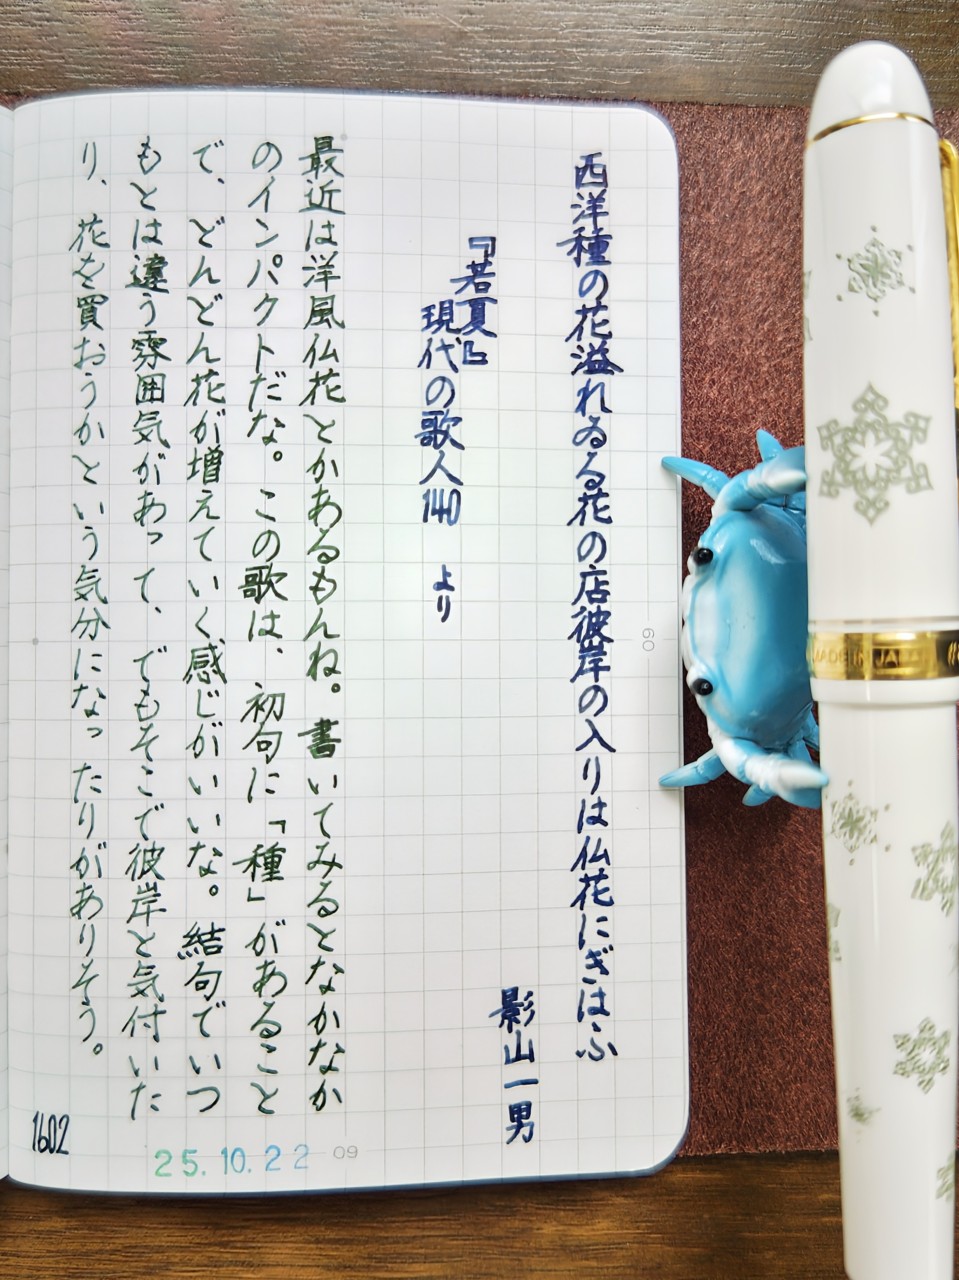 西洋種の花溢れゐる花の店彼岸の入りは仏花にぎはふ
影山一男
『若夏』
現代の歌人140 より
最近は洋風仏花とかあるもんね。書いてみるとなかなか
のインパクトだな。この歌は、初句に「種」があること
で、どんどん花が増えていく感じがいいな。結句でいつ
もとは違う雰囲気があって、でもそこで彼岸と気付いた
り、花を買おうかという気分になったりがありそう。
1602
25.10.22
09
09